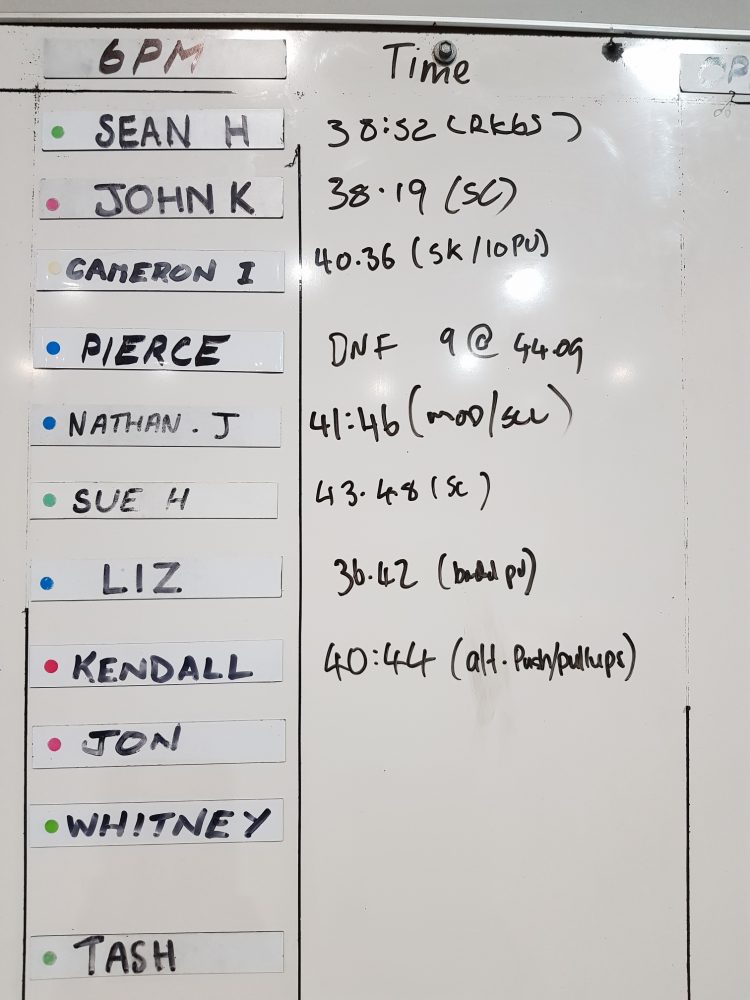 6PM Time
SEAN H 38:52 (RKBS)
JOHN K 38.19 (SC)
CAMERON I 40.36 (SK/10PU)
PIERCE DNF 9 @ 44.09
NATHAN. J 41:46 (MOD/SCL)
SUE H 43.48 (SC)
LIZ 36.42 (banded pu)
KENDALL 40:44 (alt. Push/pullups)
JON
WHITNEY
TASH